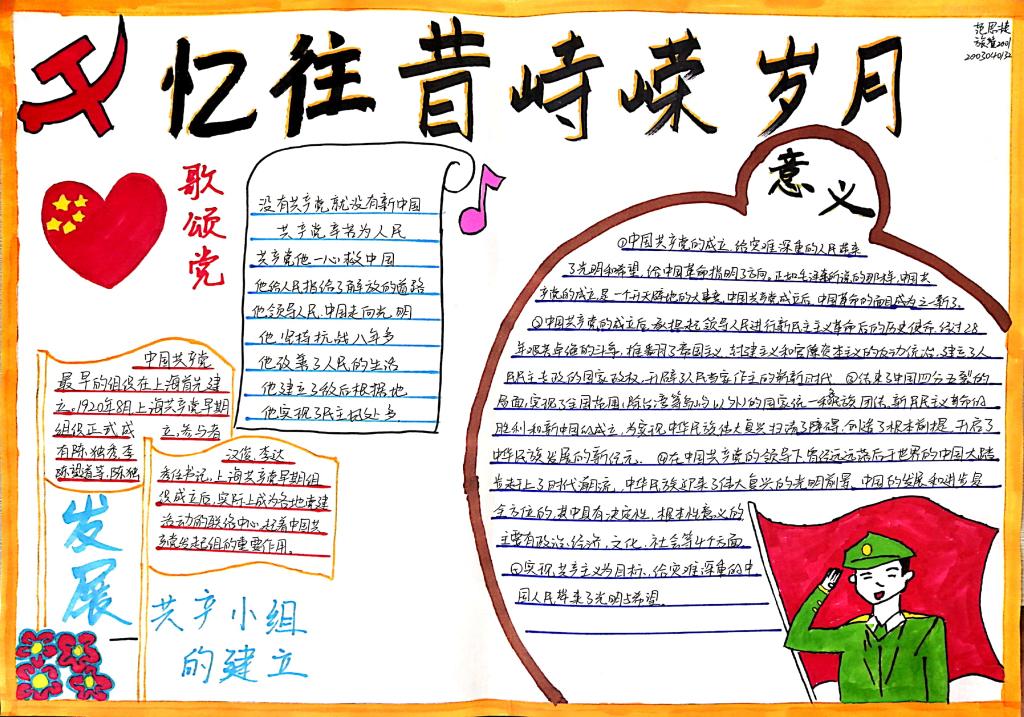 忆往昔峙嵘岁月
范思捷
2003040132
歌颂党
没有共产党就没有新中国
共产党辛劳为人民
共产党他一心救中国
他给人民指给了解放的道路
他领导人民中国走向光明
他坚持抗战八年多
他改善了人民的生活
他建立了敌后根据地
他实现了民主好处多
中国共产党
最早的组织在上海首先建
立。1920年8月上海共产党早期
组织正式成立,参与者
有陈独秀、李
陈望道等,陈独
汉俊、李达
秀任书记,上海共产党早期组
织成立后,实际上成为各地党建
活动的联络中心,起着中国共
产党发起组的重要作用。
发展
共产小组
的建立
意义
①中国共产党的成立,给灾难深重的人民带来
了光明和希望,给中国革命指明了方向,正如毛泽东所说的那样,中国共
产党的成立,是一个开天辟地的大事变,中国共产党成立后,中国革命的面目成为之一新了。
②中国共产党的成立后,承担起领导人民进行新民主主义革命后的历史使命,经过28
年艰苦卓绝的斗争,推翻了帝国主义、封建主义和官僚资本主义的反动统治,建立了人
民民主专政的国家政权,开辟了人民当家作主的崭新时代 ③结束了中国四分五裂的
局面,实现了全国在国(除台湾等岛屿以外)的国家统一和民族团结,新民民主革命的
胜利和新中国的成立,为实现中华民族伟大复兴扫清了障碍,创造了根本前提,开启了
中华民族发展的新纪元。④在中国共产党的领导下,曾经远远落后于世界的中国大踏
步走上了时代潮流,中华民族迎来了伟大复兴的光明前景。中国的发展和进步是
全方位的,其中具有决定性、根本性意义的
主要有政治、经济、文化、社会等4个方面
①实现共产主义为目标,给灾难深重的中
国人民带来了光明与希望。